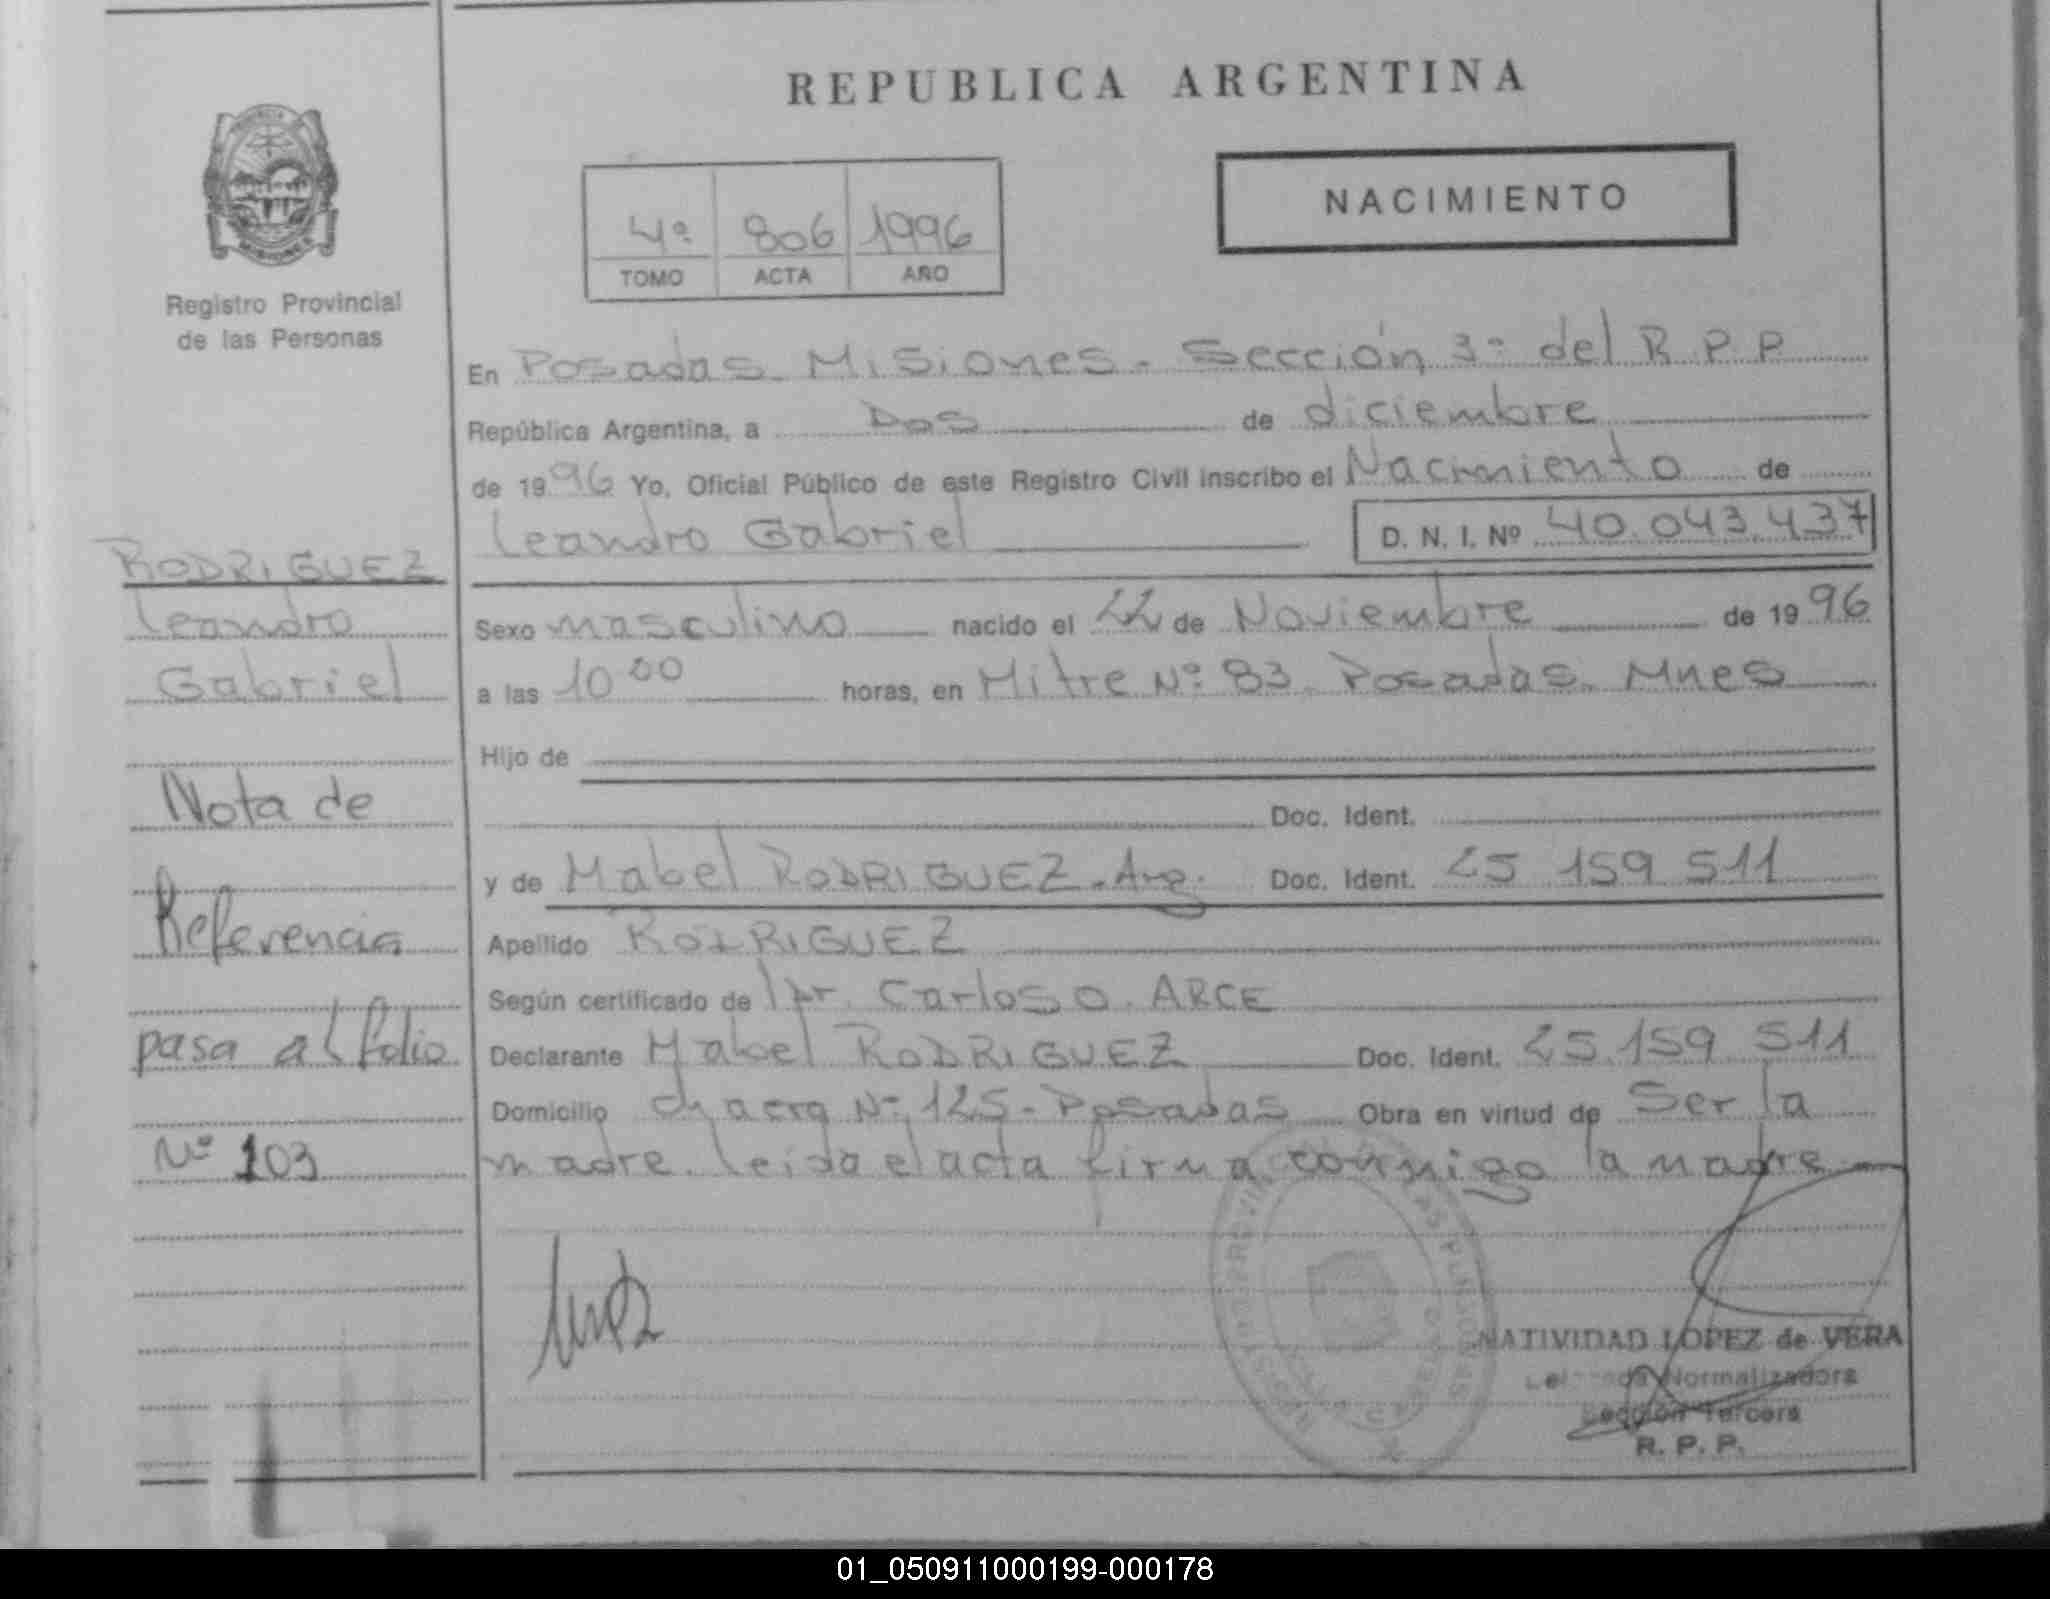 REPUBLICA ARGENTINA
NACIMIENTO
4º 806 1996
TOMO ACTA AÑO
Registro Provincial
de las Personas
En Posadas Misiones - Sección 3º del R P P
República Argentina, a Dos de diciembre
de 1996 Yo, Oficial Público de este Registro Civil inscribo el Nacimiento de
Leandro Gabriel D. N. I. Nº 40.043.437
Sexo masculino nacido el 22 de Noviembre de 1996
a las 10 00 horas, en Mitre Nº 83 Posadas Mnes
Hijo de
Doc. Ident.
y de Mabel RODRIGUEZ - Arg. Doc. Ident. 25 159 511
Apellido RODRIGUEZ
Según certificado de Carlos O. ARCE
Declarante Mabel RODRIGUEZ Doc. Ident. 25.159 511
Domicilio Chacra Nº 125 - Posadas Obra en virtud de Ser la
madre. leida el acta firma conmigo la madre
RODRIGUEZ
Leandro
Gabriel
Nota de
Referencia
pasa al folio
Nº 103
NATIVIDAD LOPEZ de VERA
Normalizadora
Sección Tercera
R. P. P.
01_050911000199-000178